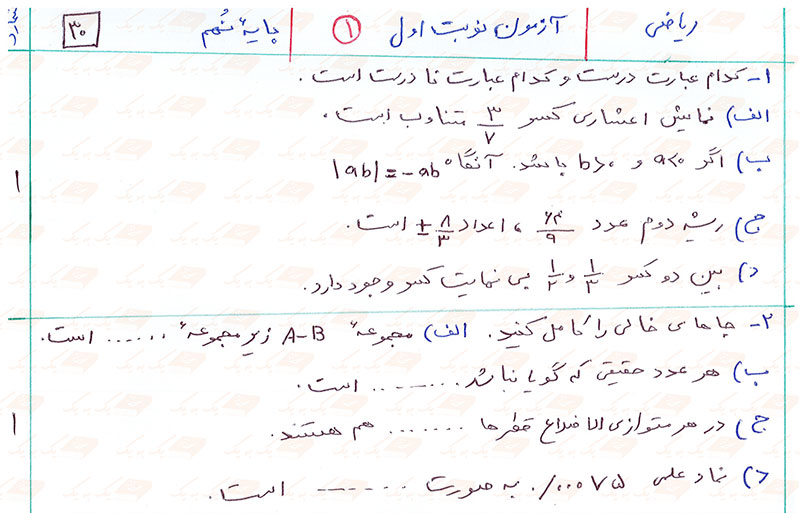 ریاضی آزمون نوبت اول ۱ پایهٔ نهم ۳۰
۱- کدام عبارت درست و کدام عبارت نادرست است.
الف) نمایش اعشاری کسر ۳/۷ متناوب است.
ب) اگر a<0 و b>0 باشد. آنگاه |ab|=-ab
ج) ریشه دوم عدد ۶۴/۹ ، اعداد ±۸/۳ است.
د) بین دو کسر ۱/۳ و ۱/۲ بی نهایت کسر وجود دارد.
۱
۲- جاهای خالی را کامل کنید. الف) مجموعهٔ A-B زیر مجموعهٔ ...... است.
ب) هر عدد حقیقی که گویا نباشد ........ است.
ج) در هر متوازی الاضلاع قطرها ....... هم هستند.
د) نماد علمی ۰/۰۰۰۷۵ به صورت ------- است.
۱